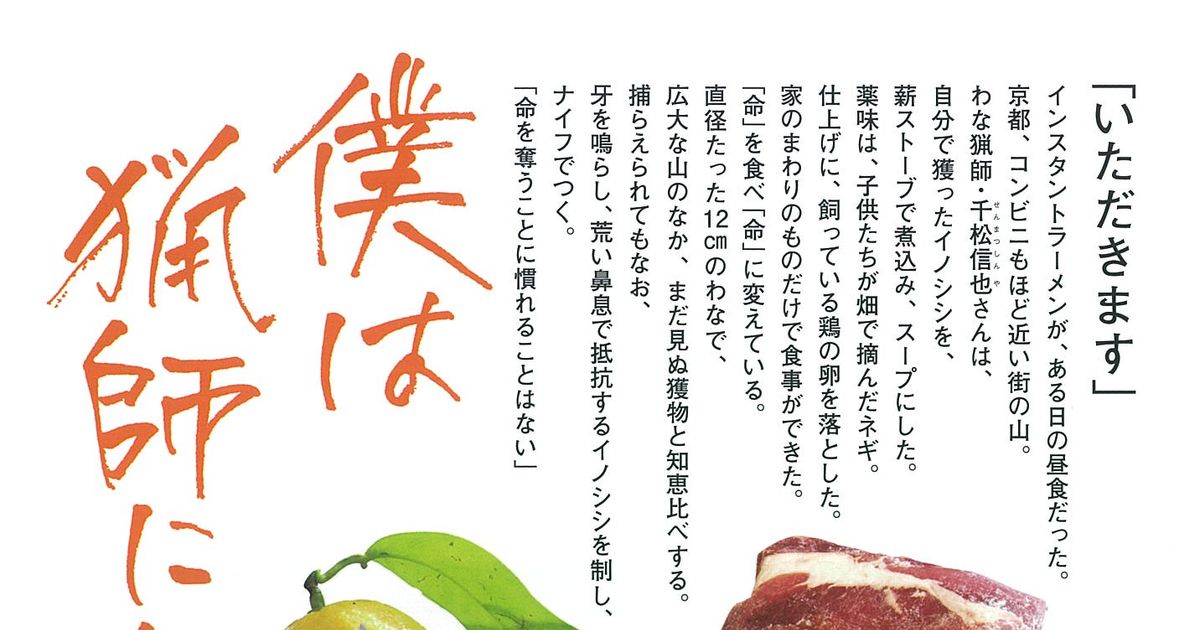 「いただきます」
インスタントラーメンが、ある日の昼食だった。
京都、コンビニもほど近い街の山。
わな猟師・千松信也さんは、
せんまつしんや
自分で獲ったイノシシを、
薪ストーブで煮込み、スープにした。
薬味は、子供たちが畑で摘んだネギ。
仕上げに、飼っている鶏の卵を落とした。
家のまわりのものだけで食事ができた。
「命」を食べ「命」に変えている。
直径たった12㎝のわなで、
広大な山のなか、まだ見ぬ獲物と知恵比べする。
捕らえられてもなお、
牙を鳴らし、荒い鼻息で抵抗するイノシシを制し、
ナイフでつく。
「命を奪うことに慣れることはない」
僕は
猟師に